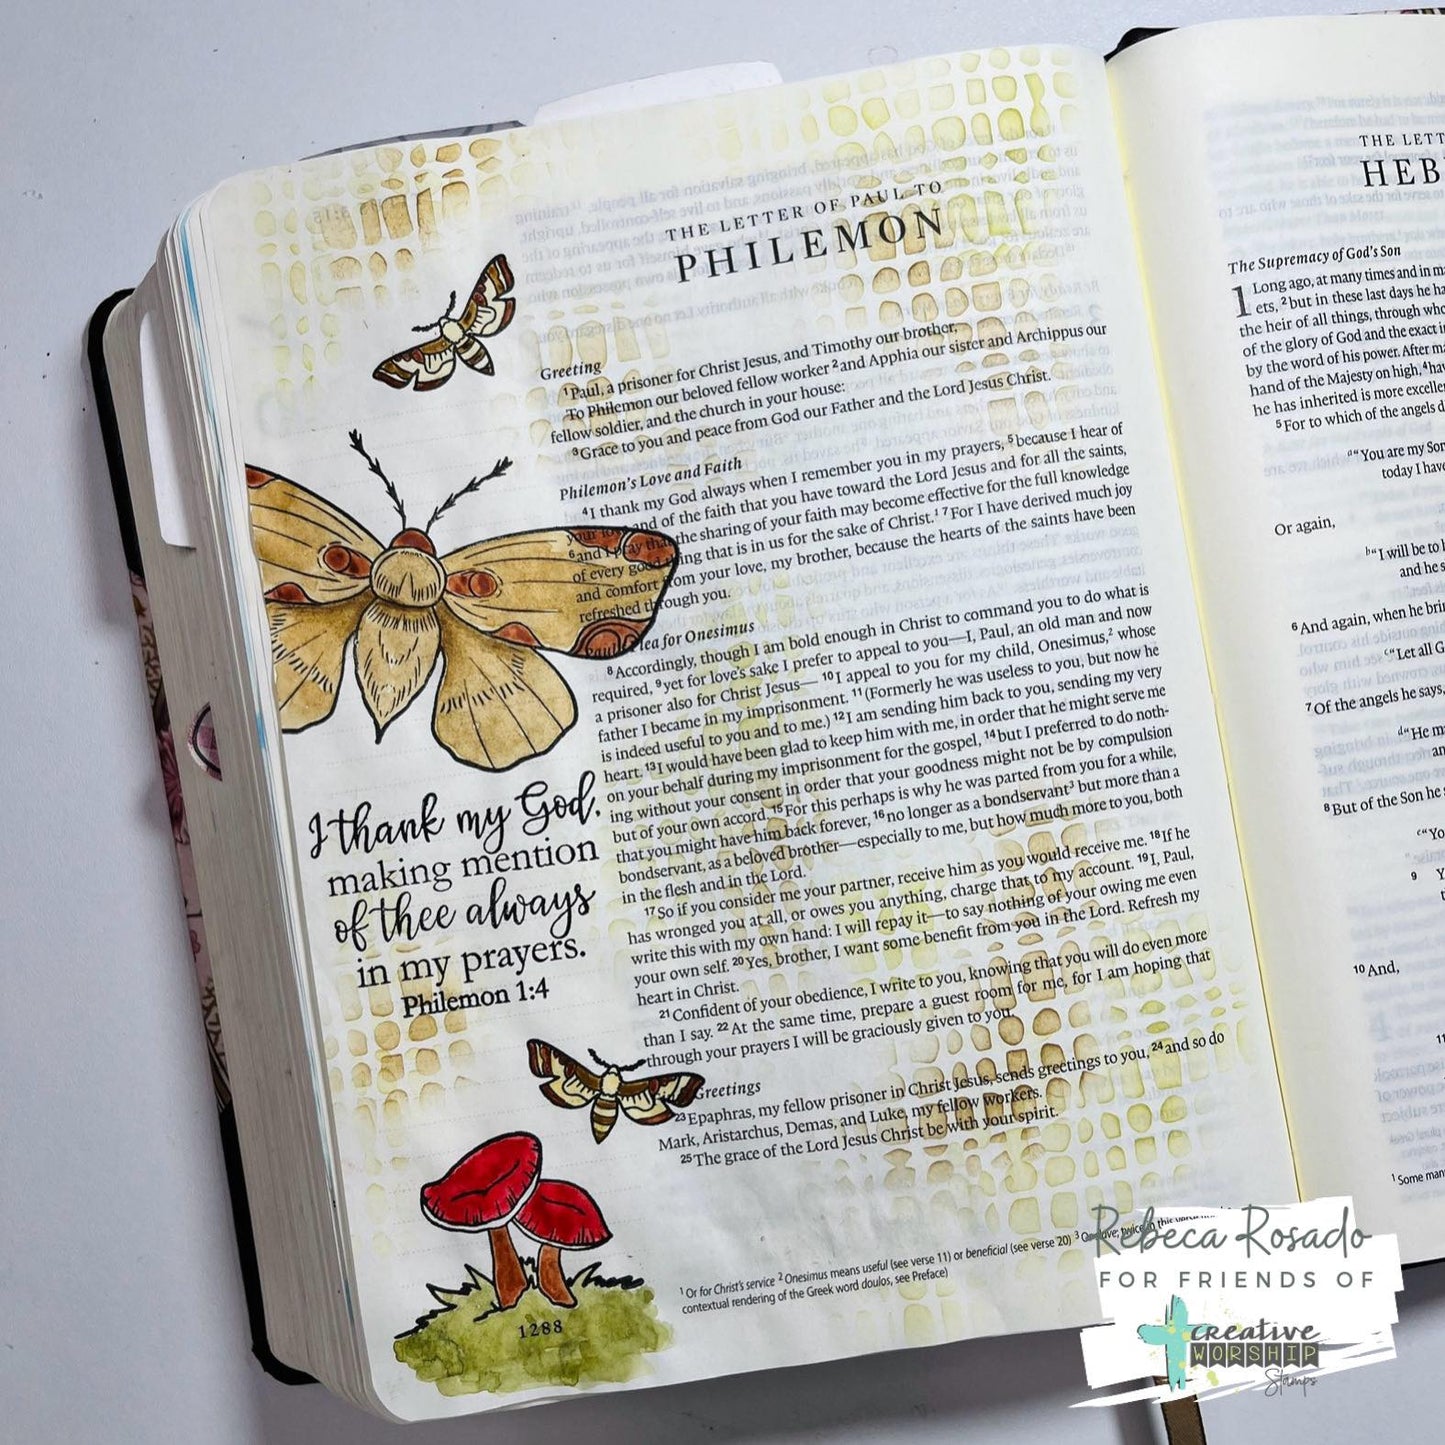 THE LETTER OF PAUL TO
PHILEMON
Greeting
1 Paul, a prisoner for Christ Jesus, and Timothy our brother,
To Philemon our beloved fellow worker 2 and Apphia our sister and Archippus our
fellow soldier, and the church in your house:
3 Grace to you and peace from God our Father and the Lord Jesus Christ.
Philemon's Love and Faith
4 I thank my God always when I remember you in my prayers, 5 because I hear of
your love and of the faith that you have toward the Lord Jesus and for all the saints,
6 and I pray that the sharing of your faith may become effective for the full knowledge
of every good thing that is in us for the sake of Christ.1 7 For I have derived much joy
and comfort from your love, my brother, because the hearts of the saints have been
refreshed through you.
Paul's Plea for Onesimus
8 Accordingly, though I am bold enough in Christ to command you to do what is
required, 9 yet for love's sake I prefer to appeal to you—I, Paul, an old man and now
a prisoner also for Christ Jesus— 10 I appeal to you for my child, Onesimus,2 whose
father I became in my imprisonment. 11 (Formerly he was useless to you, but now he
is indeed useful to you and to me.) 12 I am sending him back to you, sending my very
heart. 13 I would have been glad to keep him with me, in order that he might serve me
on your behalf during my imprisonment for the gospel, 14 but I preferred to do noth-
ing without your consent in order that your goodness might not be by compulsion
but of your own accord. 15 For this perhaps is why he was parted from you for a while,
that you might have him back forever, 16 no longer as a bondservant3 but more than a
bondservant, as a beloved brother—especially to me, but how much more to you, both
in the flesh and in the Lord.
17 So if you consider me your partner, receive him as you would receive me. 18 If he
has wronged you at all, or owes you anything, charge that to my account. 19 I, Paul,
write this with my own hand: I will repay it—to say nothing of your owing me even
your own self. 20 Yes, brother, I want some benefit from you in the Lord. Refresh my
heart in Christ.
21 Confident of your obedience, I write to you, knowing that you will do even more
than I say. 22 At the same time, prepare a guest room for me, for I am hoping that
through your prayers I will be graciously given to you.
Greetings
23 Epaphras, my fellow prisoner in Christ Jesus, sends greetings to you, 24 and so do
Mark, Aristarchus, Demas, and Luke, my fellow workers.
25 The grace of the Lord Jesus Christ be with your spirit.
1 Or for Christ's service 2 Onesimus means useful (see verse 11) or beneficial (see verse 20) 3 twice in this
contextual rendering of the Greek word doulos, see Preface)
I thank my God,
making mention
of thee always
in my prayers.
Philemon 1:4
1288
THE LETT
HEB
The Supremacy of God's Son
1 Long ago, at many times and in m
ets, 2 but in these last days he ha
the heir of all things, through who
of the glory of God and the exact i
by the word of his power. After ma
hand of the Majesty on high, 4 hav
he has inherited is more excelle
5 For to which of the angels d
a "You are my Son
today I have
Or again,
b "I will be to h
and he s
6 And again, when he brin
c "Let all G
7 Of the angels he says,
d "He m
an
8 But of the Son he s
e "Yo
9 Y
10 And,
11
1 Some man
Rebeca Rosado
FOR FRIENDS OF
creative
WORSHIP
Stamps